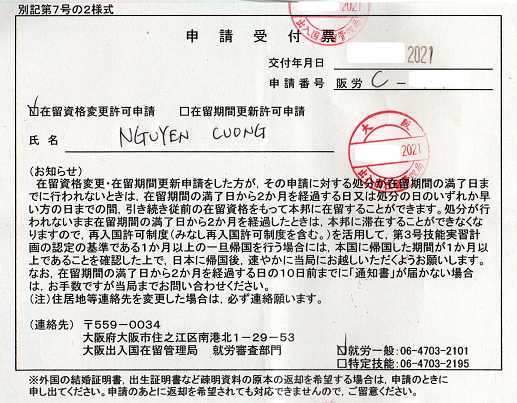 別記第7号の2様式
申請受付票
交付年月日 2021
申請番号 阪労 C -
☑在留資格変更許可申請 □在留期間更新許可申請
氏名 NGUYEN CUONG
2021
大阪
2021
(お知らせ)
在留資格変更・在留期間更新申請をした方が、その申請に対する処分が在留期間の満了日ま
でに行われないときは、在留期間の満了日から2か月を経過する日又は処分の日のいずれか早
い方の日までの間、引き続き従前の在留資格をもって本邦に在留することができます。処分が行
われないまま在留期間の満了日から2か月を経過したときは、本邦に滞在することができなくな
りますので、再入国許可制度(みなし再入国許可制度を含む。)を活用して、第3号技能実習計
画の認定の基準である1か月以上の一旦帰国を行う場合には、本国に帰国した期間が1か月以
上であることを確認した上で、日本に帰国後、速やかに当局にお越しいただくようお願いします。
なお、在留期間の満了日から2か月を経過する日の10日前までに「通知書」が届かない場合
は、お手数ですが当局までお問い合わせください。
(注)住居地等連絡先を変更した場合は、必ず連絡願います。
(連絡先) 〒559-0034
大阪府大阪市住之江区南港北1-29-53
大阪出入国在留管理局 就労審査部門 ☑就労一般:06-4703-2101
□特定技能:06-4703-2195
※外国の結婚証明書、出生証明書など疎明資料の原本の返却を希望する場合は、申請のときに
申し出てください。申請のあとに返却を希望されても対応できませんので、ご留意ください。